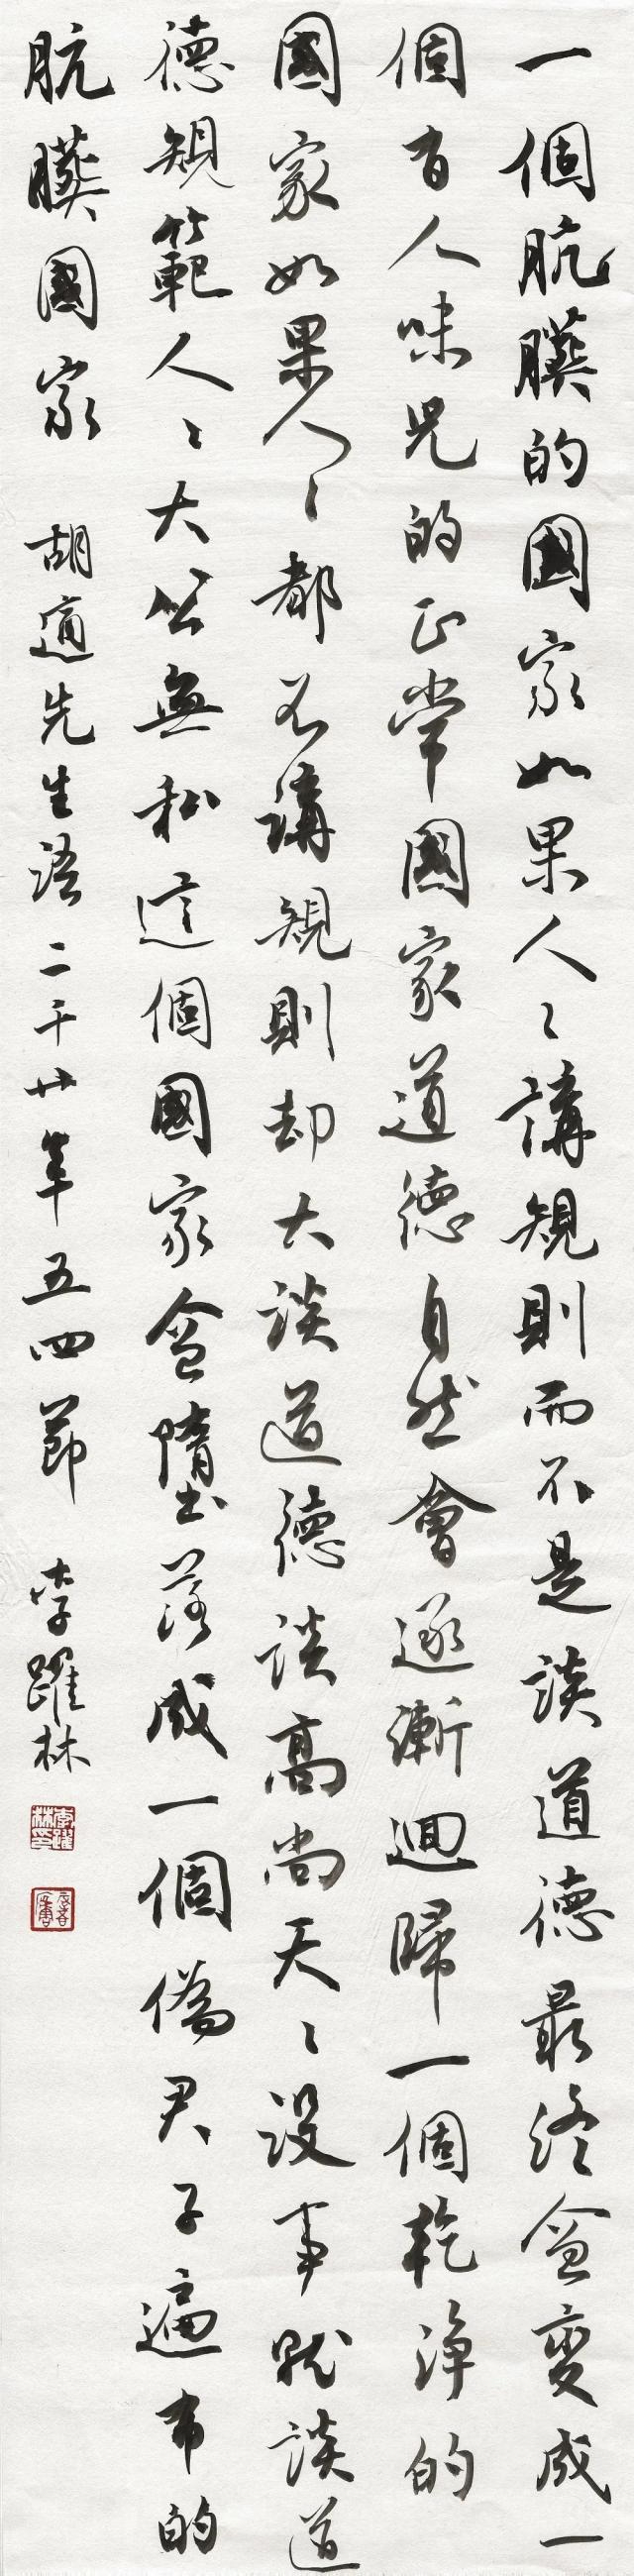 一個肮髒的國家如果人〻講規則而不是談道德最終會變成一
個有人味兒的正常國家道德自然會逐漸迴歸一個乾淨的
國家如果人〻都不講規則却大談道德談高尚天〻没事就談道
德規範人〻大公無私這個國家會墮落成一個偽君子遍布的
肮髒國家 胡適先生語二千廿年五四節 李躍林
李躍林印